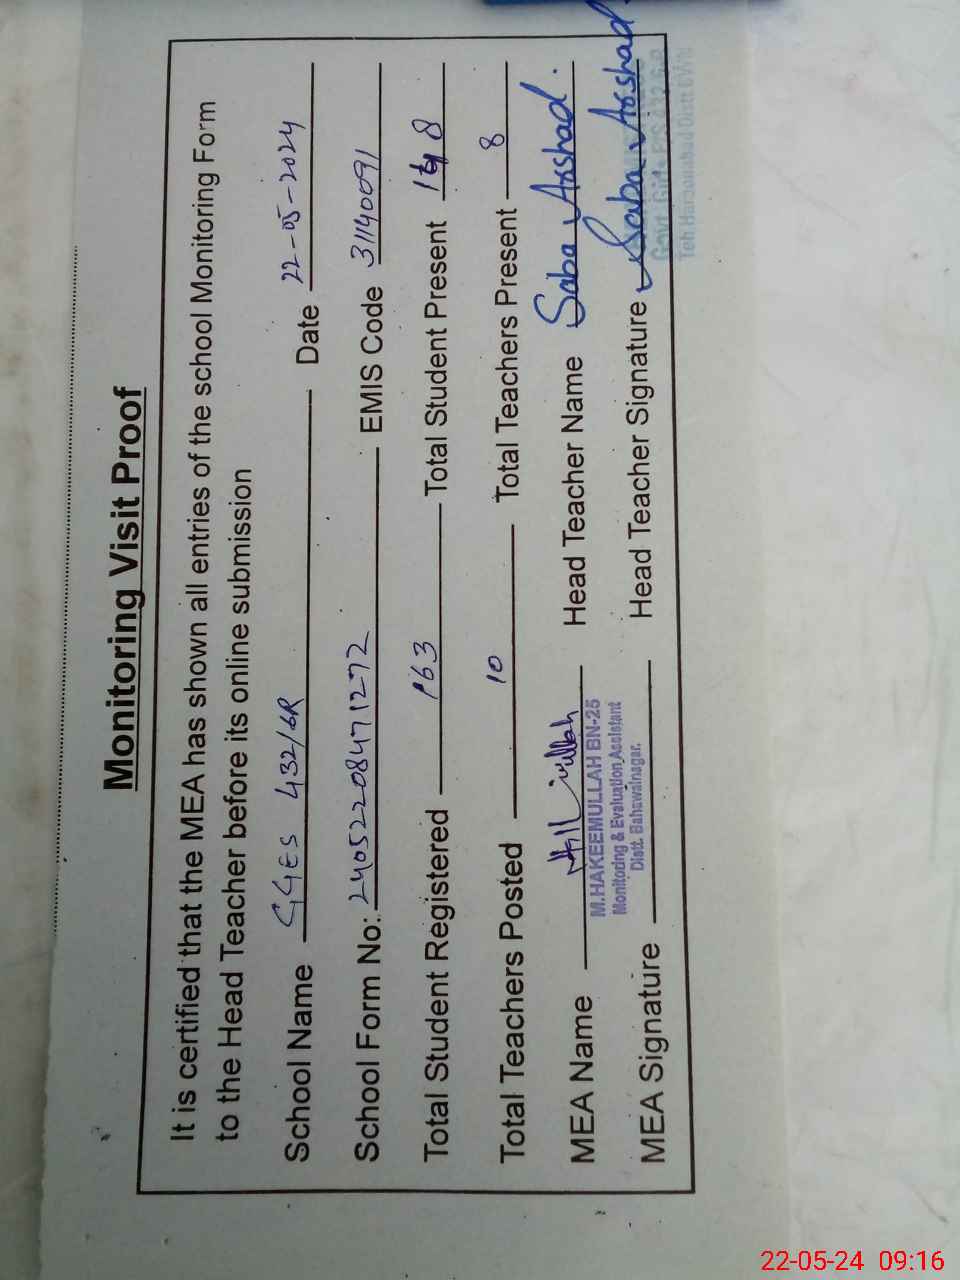 Monitoring Visit Proof
It is certified that the MEA has shown all entries of the school Monitoring Form
to the Head Teacher before its online submission
School Name GGES 432/6R Date 22-05-2024
School Form No: 24052208471272 EMIS Code 31140091
Total Student Registered 163 Total Student Present
Total Teachers Posted 10 Total Teachers Present 8
MEA Name Head Teacher Name Saba Arshad.
M.HAKEEMULLAH BN-25
Monitoring & Evaluation Assistant
Distt. Bahawalnagar.
MEA Signature Head Teacher Signature Saba Arshad
Teh Haroonabad Distt BWN
22-05-24 09:16